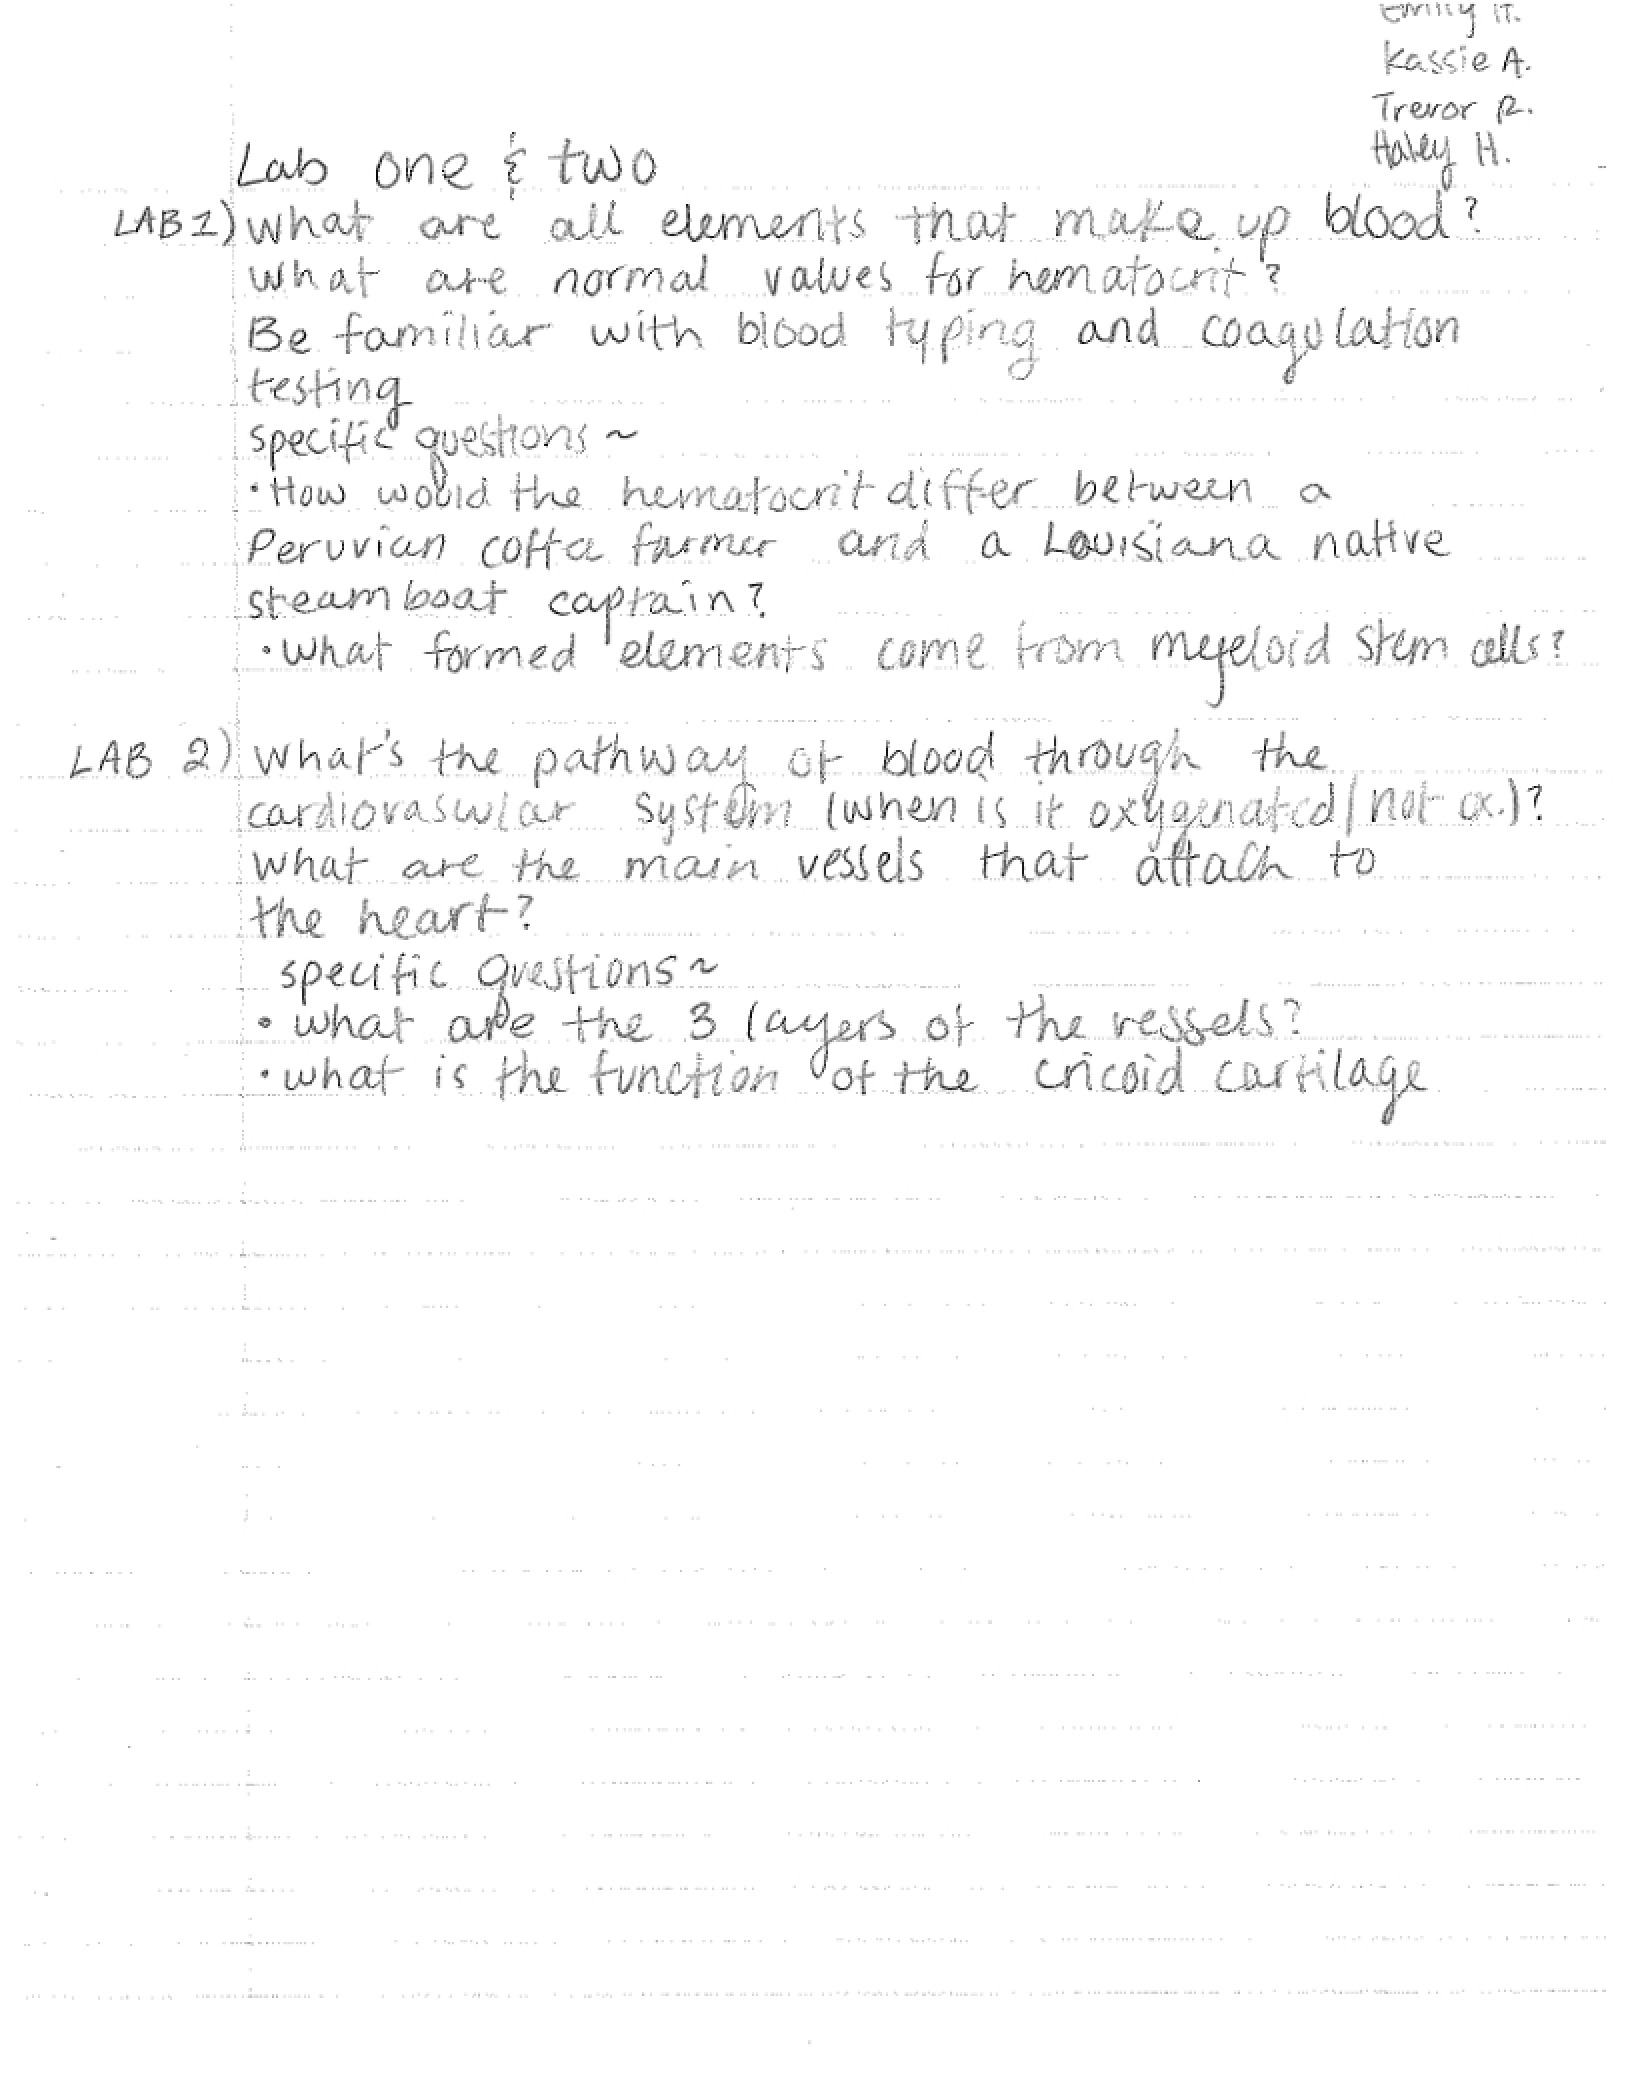 Kassie A.
Trevor R.
Haley H.
Lab one & two
LAB 1) What are all elements that make up blood?
What are normal values for hematocrit?
Be familiar with blood typing and coagulation
testing
specific questions ~
• How would the hematocrit differ between a
Peruvian coffee farmer and a Louisiana native
steam boat captain?
• What formed elements come from myeloid stem cells?
LAB 2) What's the pathway of blood through the
cardiovascular system (when is it oxygenated/not ox.)?
What are the main vessels that attach to
the heart?
specific questions ~
• what are the 3 layers of the vessels?
• what is the function of the cricoid cartilage